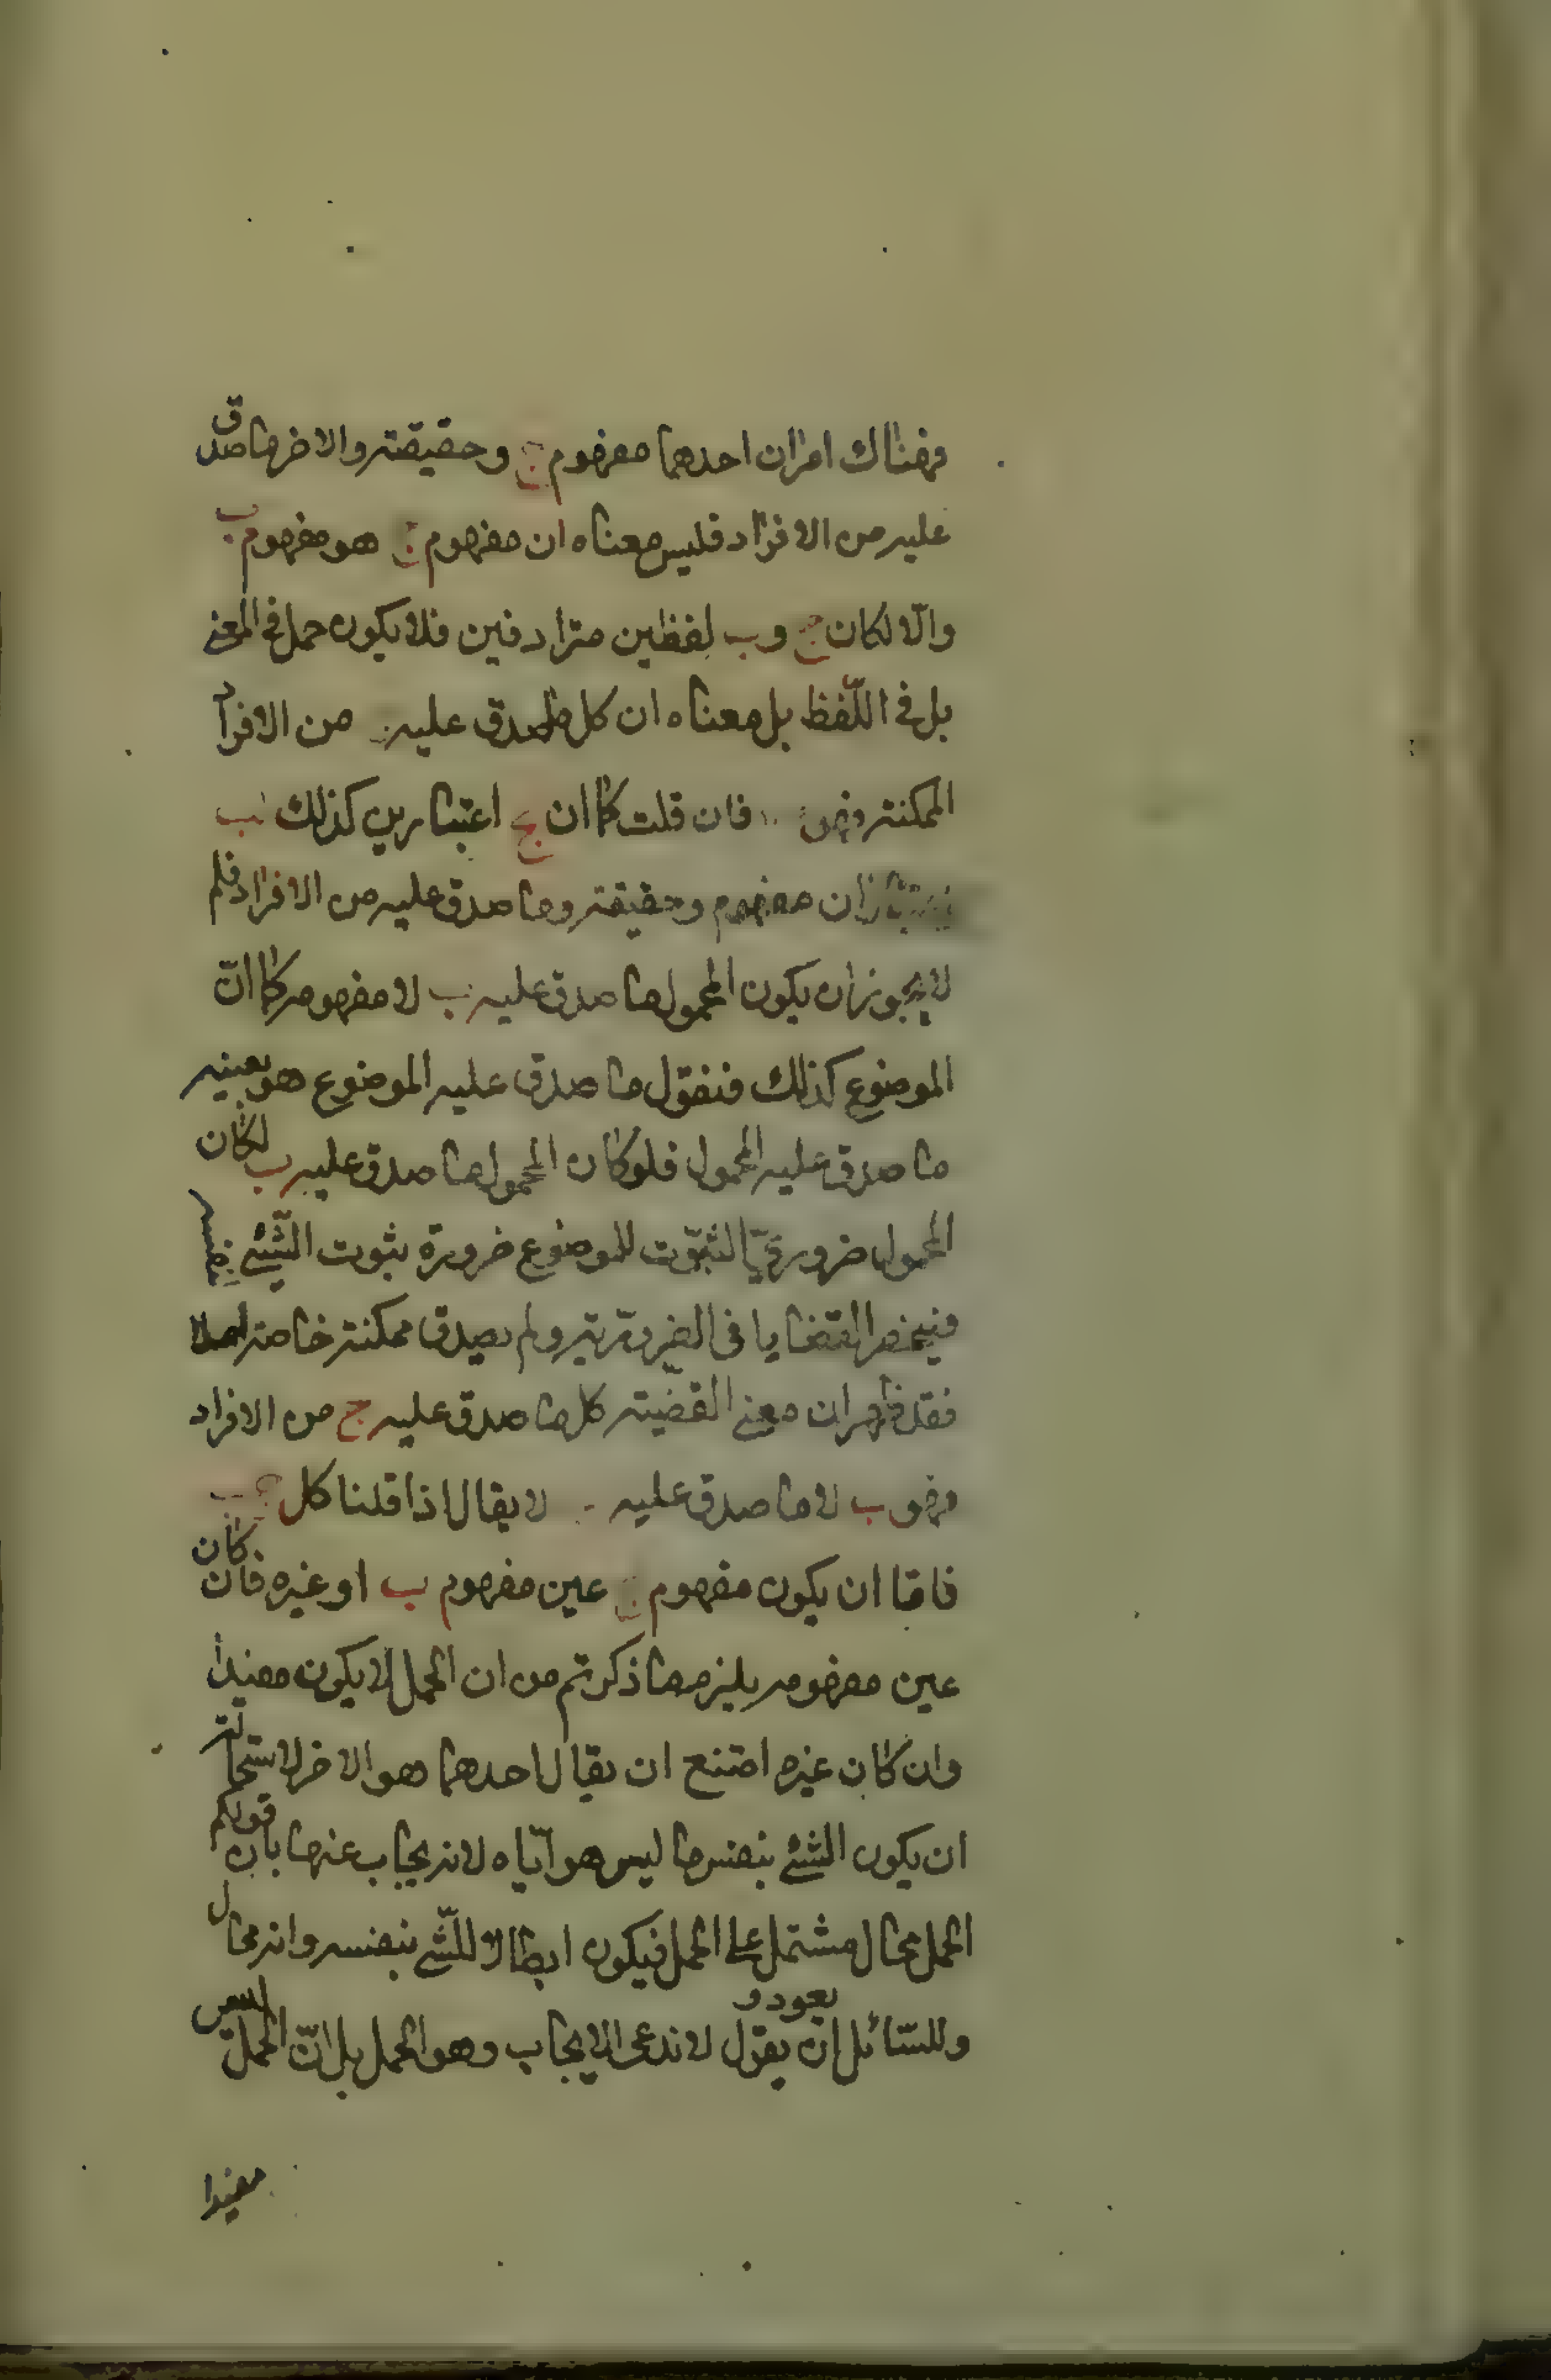 فهناك امران احدهما مفهوم ج وحقيقته والاخر ما صدق
عليه من الافراد فليس معناه ان مفهوم ج هو مفهوم ب
والّا لكان ج و ب لفظين مترادفين فلا يكون حمل فى المعنى
بل فى اللّفظ بل معناه ان كل ما صدق عليه من الافراد
الممكنة فهو فان قلت كما ان ج اعتبارين كذلك ب
اعتباران مفهوم وحقيقة وما صدق عليه من الافراد فلم
لا يجوز ان يكون المحمول ما صدق عليه ب لا مفهومه كما انّ
الموضوع كذلك فنقول ما صدق عليه الموضوع هو بعينه
ما صدق عليه المحمول فلو كان المحمول ما صدق عليه ب لكان
المحمول ضروريّ الثبوت للموضوع ضرورة ثبوت الشّئ لنفسه
فينحصر القضايا فى الضرورية ولم يصدق ممكنة خاصة اصلا
فقد ظهر ان معنى القضيّة كل ما صدق عليه ج من الافراد
فهو ب لا ما صدق عليه لا يقال اذا قلنا كل ج ب
فامّا ان يكون مفهوم ج عين مفهوم ب او غيره فان كان
عين مفهومه يلزم ما ذكرتم من ان الحمل لا يكون مفيدا
وان كان غيره امتنع ان يقال احدهما هو الاخر لاستحالة
ان يكون الشئ بنفس ما ليس هو ايّاه لانه يجاب عنها بان قولكم
الحمل محال مشتمل على الحمل فيكون ابطالا للشّئ بنفسه وانه محال
وللسّائل ان يعود و يقول لا ندعى الايجاب وهو الحمل بل انّ الحمل ليس
مفيدا